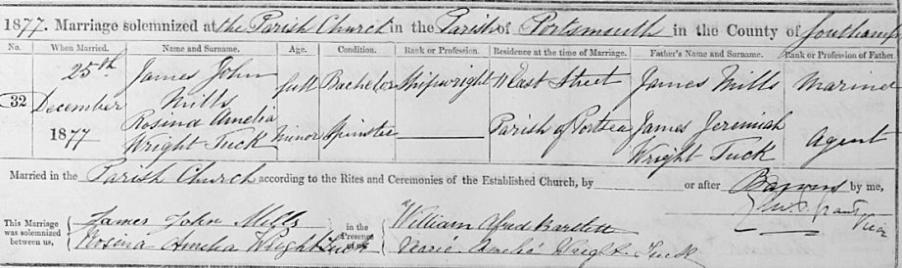 1877. Marriage solemnized at the Parish Church in the Parish of Portsmouth in the County of Southampt
No. When Married. Name and Surname. Age. Condition. Rank or Profession. Residence at the time of Marriage. Father's Name and Surname. Rank or Profession of Father.
32 25th December 1877 James John Mills full Bachelor Shipwright 11 East Street James Mills Marine
Rosina Amelia Wright Tuck Minor Spinster Parish of Portsea James Jeremiah Wright Tuck Agent
Married in the Parish Church according to the Rites and Ceremonies of the Established Church, by or after Banns by me,
Grant Vicar
This Marriage was solemnized between us, James John Mills Rosina Amelia Wright Tuck in the Presence of us, William Alfred Bartlett Marie Amelie Wright Tuck